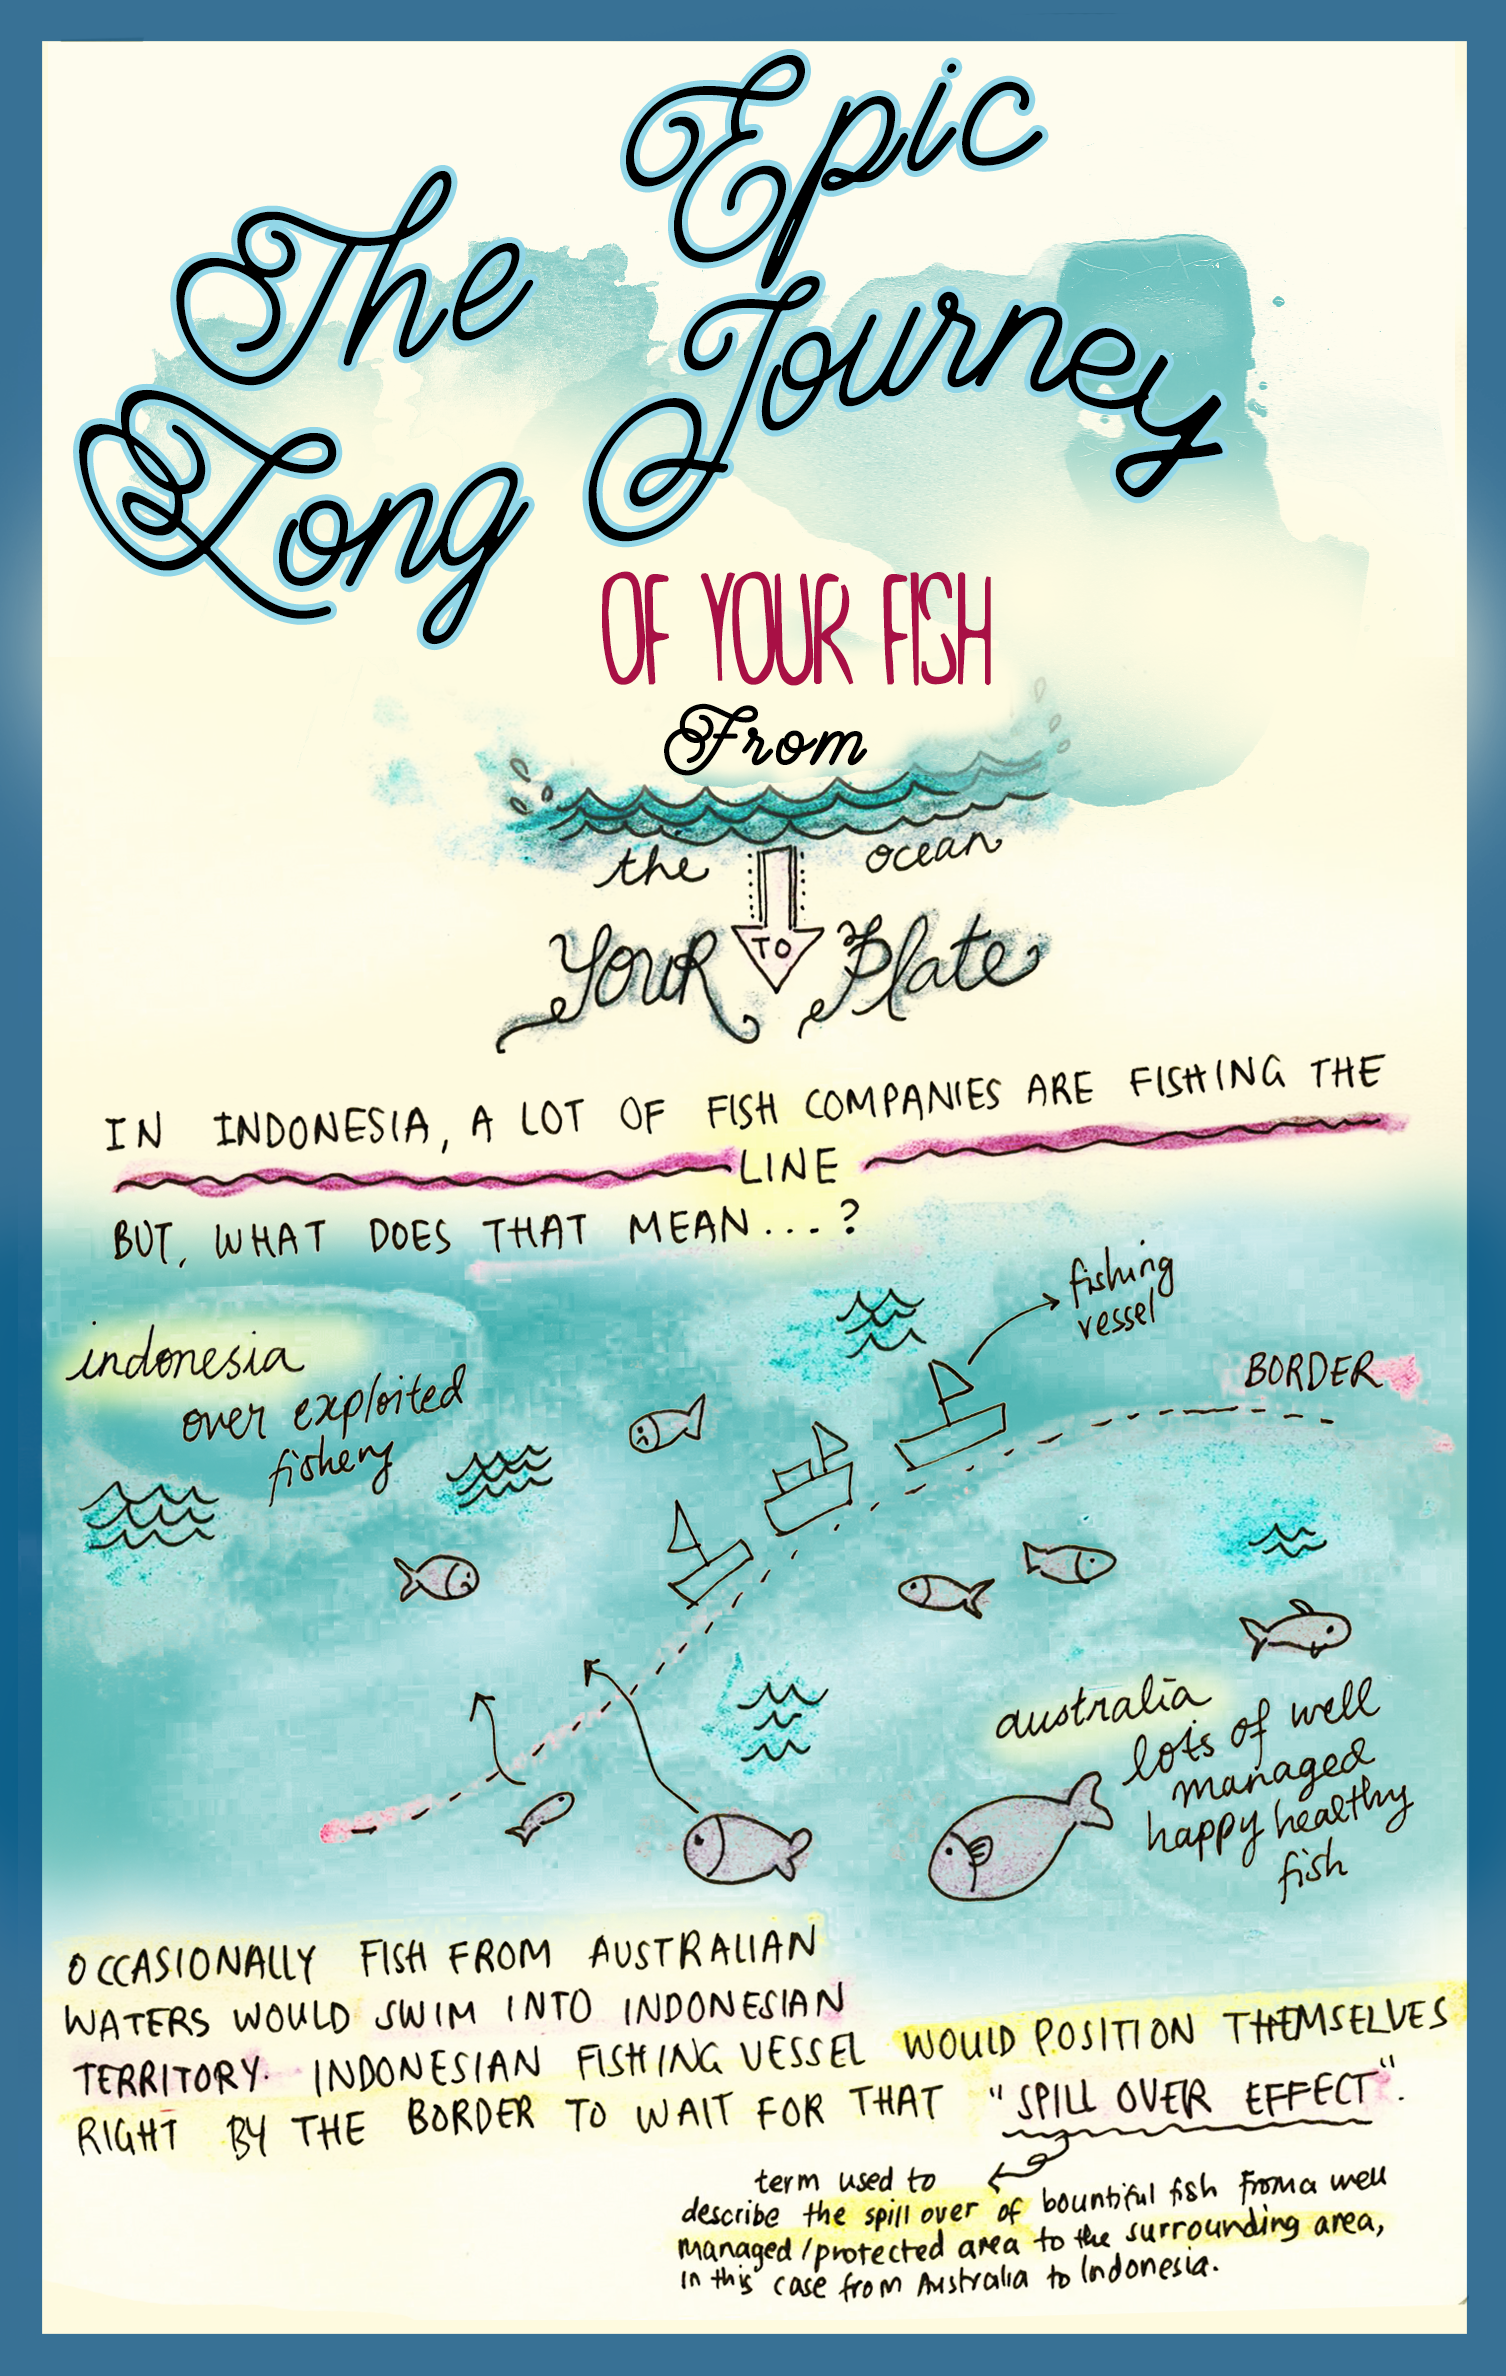 The Epic
Long Journey
OF YOUR FISH
From
the ocean
TO
YouR Plate
IN INDONESIA, A LOT OF FISH COMPANIES ARE FISHING THE
LINE
BUT, WHAT DOES THAT MEAN...?
fishing
vessel
BORDER
indonesia
over exploited
fishery
australia
lots of well
managed
happy healthy
fish
OCCASIONALLY FISH FROM AUSTRALIAN
WATERS WOULD SWIM INTO INDONESIAN
TERRITORY. INDONESIAN FISHING VESSEL WOULD POSITION THEMSELVES
RIGHT BY THE BORDER TO WAIT FOR THAT "SPILL OVER EFFECT".
term used to
describe the spill over of bountiful fish From a well
managed/protected area to the surrounding area,
in this case from Australia to Indonesia.